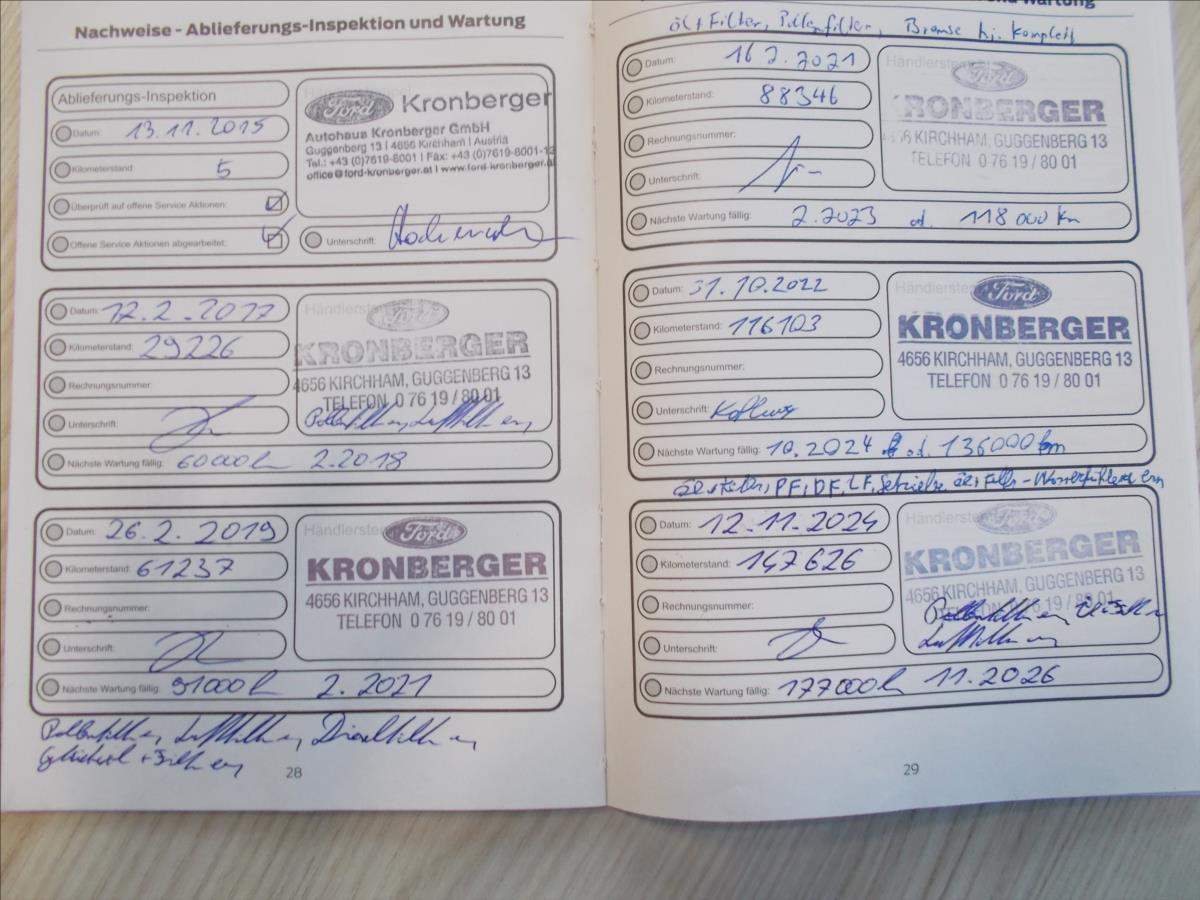 Nachweise - Ablieferungs-Inspektion und Wartung
Ablieferungs-Inspektion
Datum: 13.11.2015
Kilometerstand: 5
Überprüft auf offene Service Aktionen:
Offene Service Aktionen abgearbeitet:
Ford Kronberger
Autohaus Kronberger GmbH
Guggenberg 13 | 4656 Kirchham | Austria
Tel.: +43 (0)7619-8001 | Fax: +43 (0)7619-8001-13
office@ford-kronberger.at | www.ford-kronberger.at
Unterschrift:
Datum: 12.2.2017
Kilometerstand: 29226
Rechnungsnummer:
Unterschrift:
Nächste Wartung fällig: 60000 2.2018
Ford
KRONBERGER
4656 KIRCHHAM, GUGGENBERG 13
TELEFON 0 76 19 / 80 01
Datum: 26.2.2019
Kilometerstand: 61237
Rechnungsnummer:
Unterschrift:
Nächste Wartung fällig: 91000 2.2021
Händlerstem
Ford
KRONBERGER
4656 KIRCHHAM, GUGGENBERG 13
TELEFON 0 76 19 / 80 01
28
Wartung
Öl + Filter, Pollenfilter, Bremse hi. komplett
Datum: 16 2.2021
Kilometerstand: 88346
Rechnungsnummer:
Unterschrift:
Nächste Wartung fällig: 2.2023 od. 118 000 km
Händlerstem
Ford
KRONBERGER
4656 KIRCHHAM, GUGGENBERG 13
TELEFON 0 76 19 / 80 01
Datum: 31.10.2022
Kilometerstand: 116103
Rechnungsnummer:
Unterschrift:
Nächste Wartung fällig: 10.2024 od. 136000 km
Händlerstem
Ford
KRONBERGER
4656 KIRCHHAM, GUGGENBERG 13
TELEFON 0 76 19 / 80 01
PF, DF, LF,
Datum: 12.11.2024
Kilometerstand: 147626
Rechnungsnummer:
Unterschrift:
Nächste Wartung fällig: 177000 11.2026
Händlerstem
Ford
KRONBERGER
4656 KIRCHHAM, GUGGENBERG 13
29